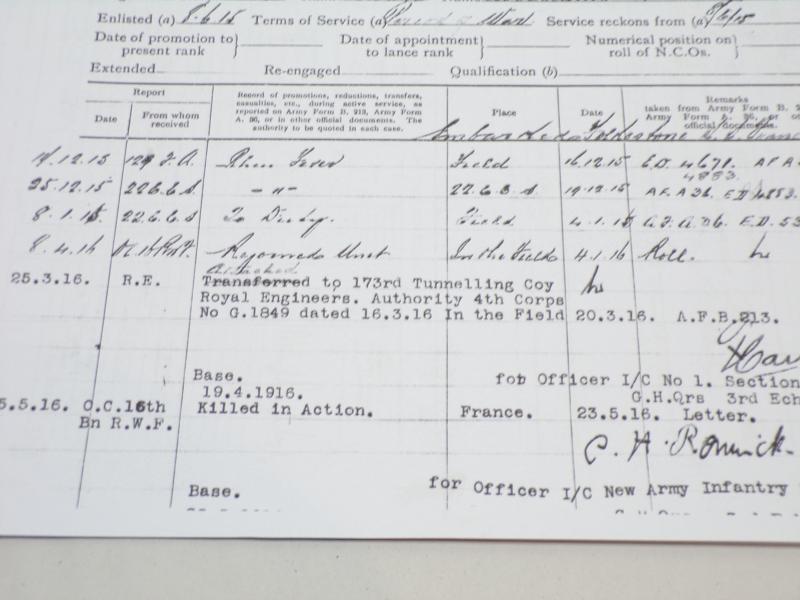 Enlisted (a) 8.6.15 Terms of Service (a) War Service reckons from (a) 8/6/15
Date of promotion to present rank } Date of appointment to lance rank } Numerical position on roll of N.C.Os. }
Extended Re-engaged Qualification (b)
Report
Date From whom received
Record of promotions, reductions, transfers, casualties, etc., during active service, as reported on Army Form B. 213, Army Form A. 36, or in other official documents. The authority to be quoted in each case.
Place
Date
Remarks
taken from Army Form B.
Army Form A. 36, or
official documents.
Embarked Folkestone
.12.15 129 F.A. Rheu Fever Field 16.12.15 E.D. 4671. A F A
4883.
25.12.15 22 C.C.S – " – 22.C.C.S. 19.12.15 A.F. A 36. E D 4883.
8.1.15. 22 C.C.S To Duty. Field 4.1.15 A.F. A 36. E.D.
8.4.16 Rejoined Unit In the Field 4.1.16 Roll.
Attached
25.3.16. R.E. Transferred to 173rd Tunnelling Coy
Royal Engineers. Authority 4th Corps
No G.1849 dated 16.3.16 In the Field 20.3.16. A.F.B.213.
Base. for Officer I/C No 1. Section
19.4.1916. G.H.Qrs 3rd Ech
5.5.16. O.C.16th Killed in Action. France. 23.5.16. Letter.
Bn R.W.F.
Base. for Officer I/C New Army Infantry